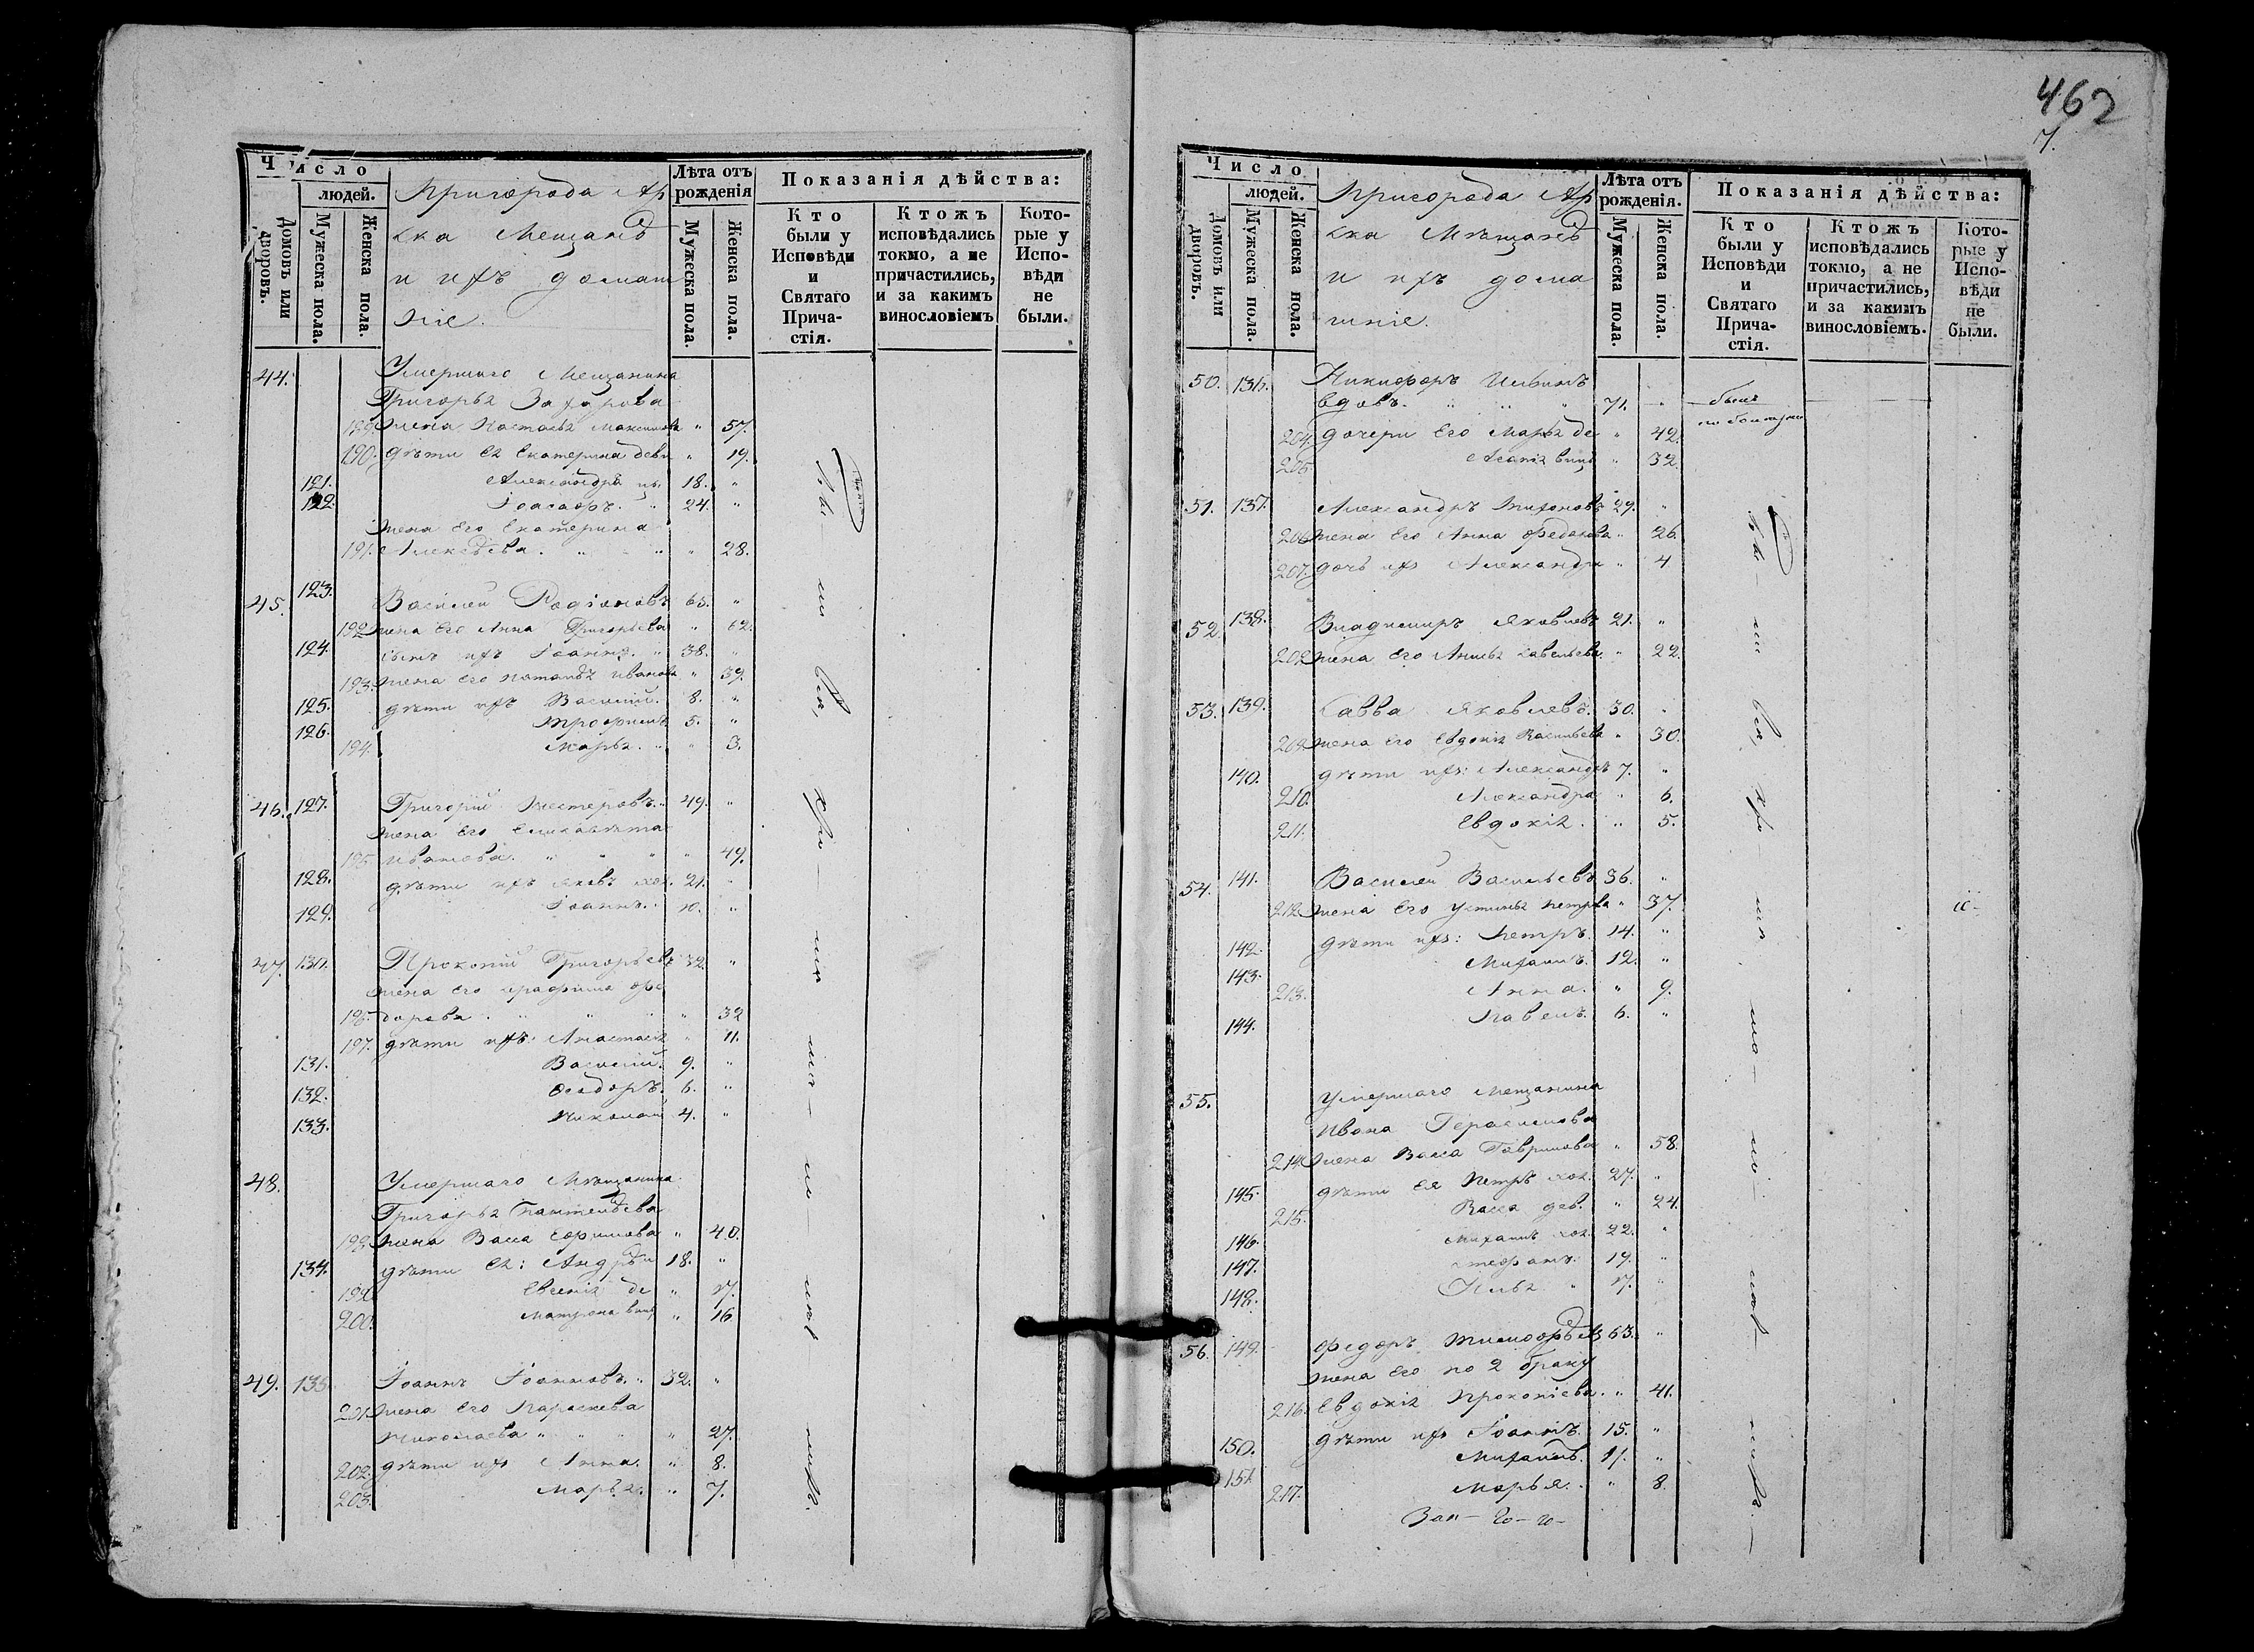 462
7.
Число
людей.
Домовъ или дворовъ.
Мужеска пола.
Женска пола.
Пригорода Ар
ска Мещанъ
и ихъ домаш
ніе.
Лѣта отъ
рожденія
Мужеска пола.
Женска пола.
Показанія дѣйства:
Кто
были у
Исповѣди
и
Святаго
Прича-
стія.
Ктожъ
исповѣдались
токмо, а не
причастились,
и за какимъ
винословіемъ
Кото-
рые у
Испо-
вѣди
не
были.
44. Умершаго Мещанина
Григорья Захарова
189. жена Настасья Максимова " 57.
190. дѣти ея Екатерина деви " 19.
121. Александръ 18. "
122. Іоасафъ. " 24. "
жена его Екатерина
191. Алексѣева. " " " 28.
45. 123. Василей Родіоновъ 63. "
192. жена его Анна Григорьева " 62.
124. сынъ ихъ Іоаннъ. " 38. "
193. жена его Наталья Иванова " 39.
125. дѣти ихъ Василій. 8. "
126. Трофимъ 5. "
194. Марья. " " 3.
46. 127. Григорій Нестеровъ. " 49. "
жена его Елисавета
195. Иванова. " " " " 49.
128. дѣти ихъ Яковъ хол. 21. "
129. Іоаннъ. 10. "
47. 130. Прокопій Григорьевъ 32. "
жена его Ирафима Фе
196. дорова. " " " " 32
197. дѣти ихъ: Анастасія " 11.
131. Василій. 9. "
132. Ѳеодоръ. 6. "
133. Николай 4. "
48. Умершаго Мѣщанина
Григорья Пантелѣева
198. жена Васса Ефимова " 40.
134. дѣти ея: Андрѣй 18. "
199. Евгенія де " 17.
200. Матрона вицы " 16
49. 135. Іоаннъ Іоанновъ. " 32. "
201. жена его Параскева
Николаева " " " " 27.
202. дѣти ихъ Анна. " 8.
203. Марья. " 7.
Число
людей.
Домовъ или дворовъ.
Мужеска пола.
Женска пола.
Пригорода Ар
ска Мѣщанъ
и ихъ дома
шніе.
Лѣта отъ
рожденія.
Мужеска пола.
Женска пола.
Показанія дѣйства:
Кто
были у
Исповѣди
и
Святаго
Прича-
стія.
Ктожъ
исповѣдались
токмо, а не
причастились,
и за какимъ
винословіемъ.
Кото-
рые у
Испо-
вѣди
не
были.
50. 136. Никифоръ Ильинъ
вдовъ. " " " 71. "
204. дочери его Марья де " 42.
205. вицы " 32.
51. 137. Александръ Тихоновъ 29. "
206. жена его Анна Федотова " 26.
207. дочь ихъ Александра " 4
52. 138. Владимиръ Яковлевъ 21. "
208. жена его Савельева. " 22.
53. 139. Савва Яковлевъ. 30. "
209. жена его Евдокія Васильева " 30.
140. дѣти ихъ: Александръ 7. "
210. Александра " 6.
211. Евдокія. " 5.
54. 141. Василей Васильевъ 36. "
212. жена его Устинья Петрова " 37.
142. дѣти ихъ: Петръ. 14. "
143. Михаилъ. 12. "
213. Анна. " 9.
144. Павелъ. 6. "
55. Умершаго Мещанина
Ивана Герасимова
214. жена Васса Гаврилова " 58.
145. дѣти ея Петръ хол. 27. "
215. Васса дев. " 24.
146. Михаилъ хол. 22. "
147. Стефанъ. 19. "
148. Илья " 17. "
56. 149. Федоръ Тимофѣевъ 63. "
жена его по 2 браку
216. Евдокія Прокопіева. " 41.
150. дѣти ихъ Іоаннъ. 15. "
151. Михаилъ. 11. "
217. Марья. " 8.